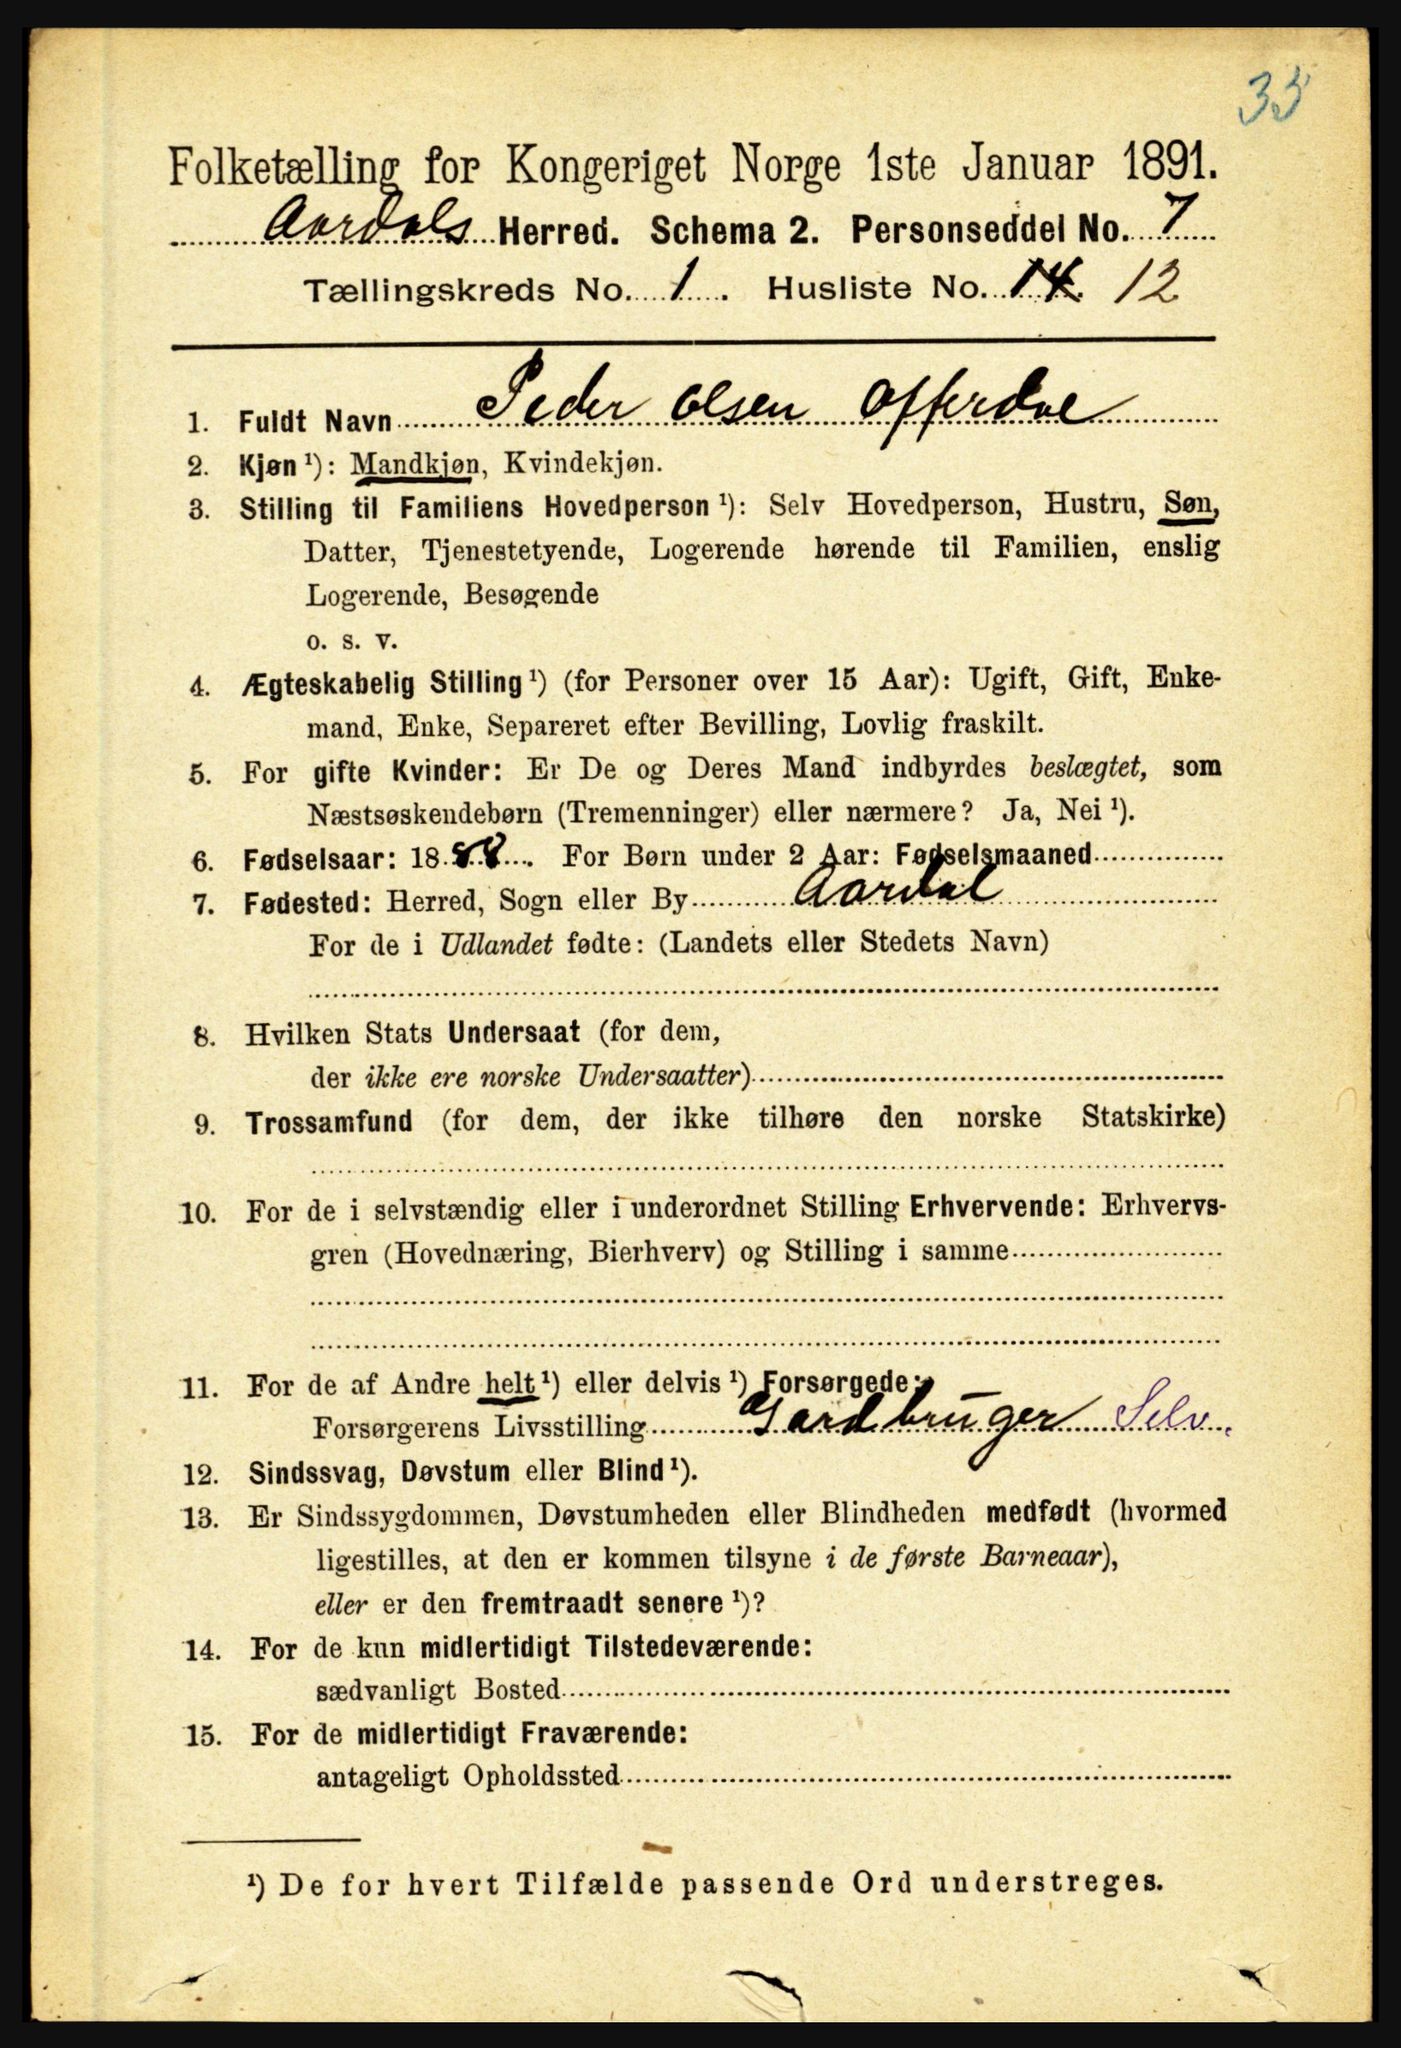 35
Folketælling for Kongeriget Norge 1ste Januar 1891.
Aardals Herred. Schema 2. Personseddel No. 7
Tællingskreds No. 1. Husliste No. 14. 12
1. Fuldt Navn Peder Olsen Offerdal
2. Kjøn ¹): Mandkjøn, Kvindekjøn.
3. Stilling til Familiens Hovedperson ¹): Selv Hovedperson, Hustru, Søn,
Datter, Tjenestetyende, Logerende hørende til Familien, enslig
Logerende, Besøgende
o. s. v.
4. Ægteskabelig Stilling ¹) (for Personer over 15 Aar): Ugift, Gift, Enke-
mand, Enke, Separeret efter Bevilling, Lovlig fraskilt.
5. For gifte Kvinder: Er De og Deres Mand indbyrdes beslægtet, som
Næstsøskendebørn (Tremenninger) eller nærmere? Ja, Nei ¹).
6. Fødselsaar: 1888. For Børn under 2 Aar: Fødselsmaaned
7. Fødested: Herred, Sogn eller By Aardal
For de i Udlandet fødte: (Landets eller Stedets Navn)
8. Hvilken Stats Undersaat (for dem,
der ikke ere norske Undersaatter)
9. Trossamfund (for dem, der ikke tilhøre den norske Statskirke)
10. For de i selvstændig eller i underordnet Stilling Erhvervende: Erhvervs-
gren (Hovednæring, Bierhverv) og Stilling i samme
11. For de af Andre helt ¹) eller delvis ¹) Forsørgede:
Forsørgerens Livsstilling Gardbruger Selv.
12. Sindssvag, Døvstum eller Blind ¹).
13. Er Sindssygdommen, Døvstumheden eller Blindheden medfødt (hvormed
ligestilles, at den er kommen tilsyne i de første Barneaar),
eller er den fremtraadt senere ¹)?
14. For de kun midlertidigt Tilstedeværende:
sædvanligt Bosted
15. For de midlertidigt Fraværende:
antageligt Opholdssted
¹) De for hvert Tilfælde passende Ord understreges.